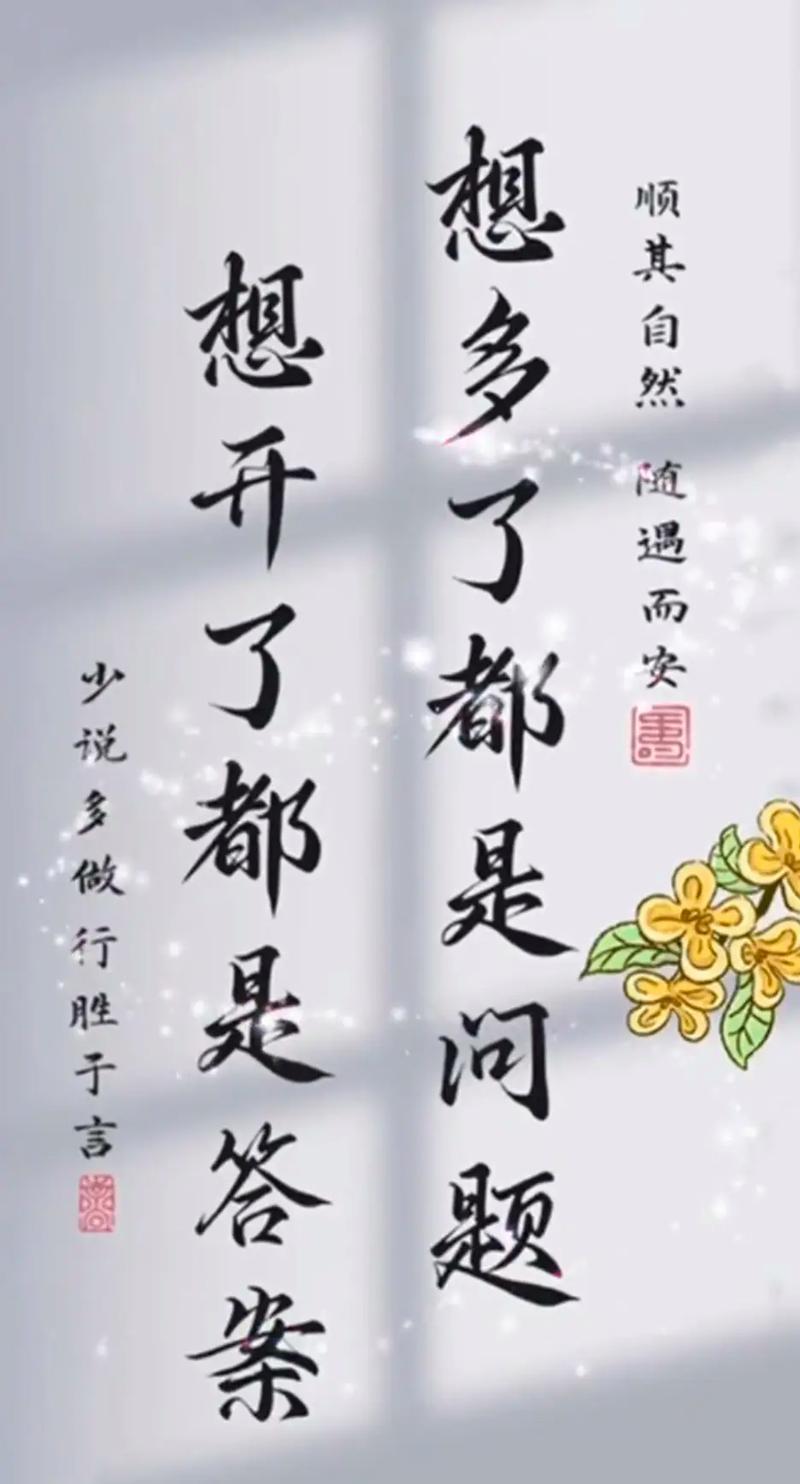 顺其自然 随遇而安
想多了都是问题
想开了都是答案
少说多做行胜于言